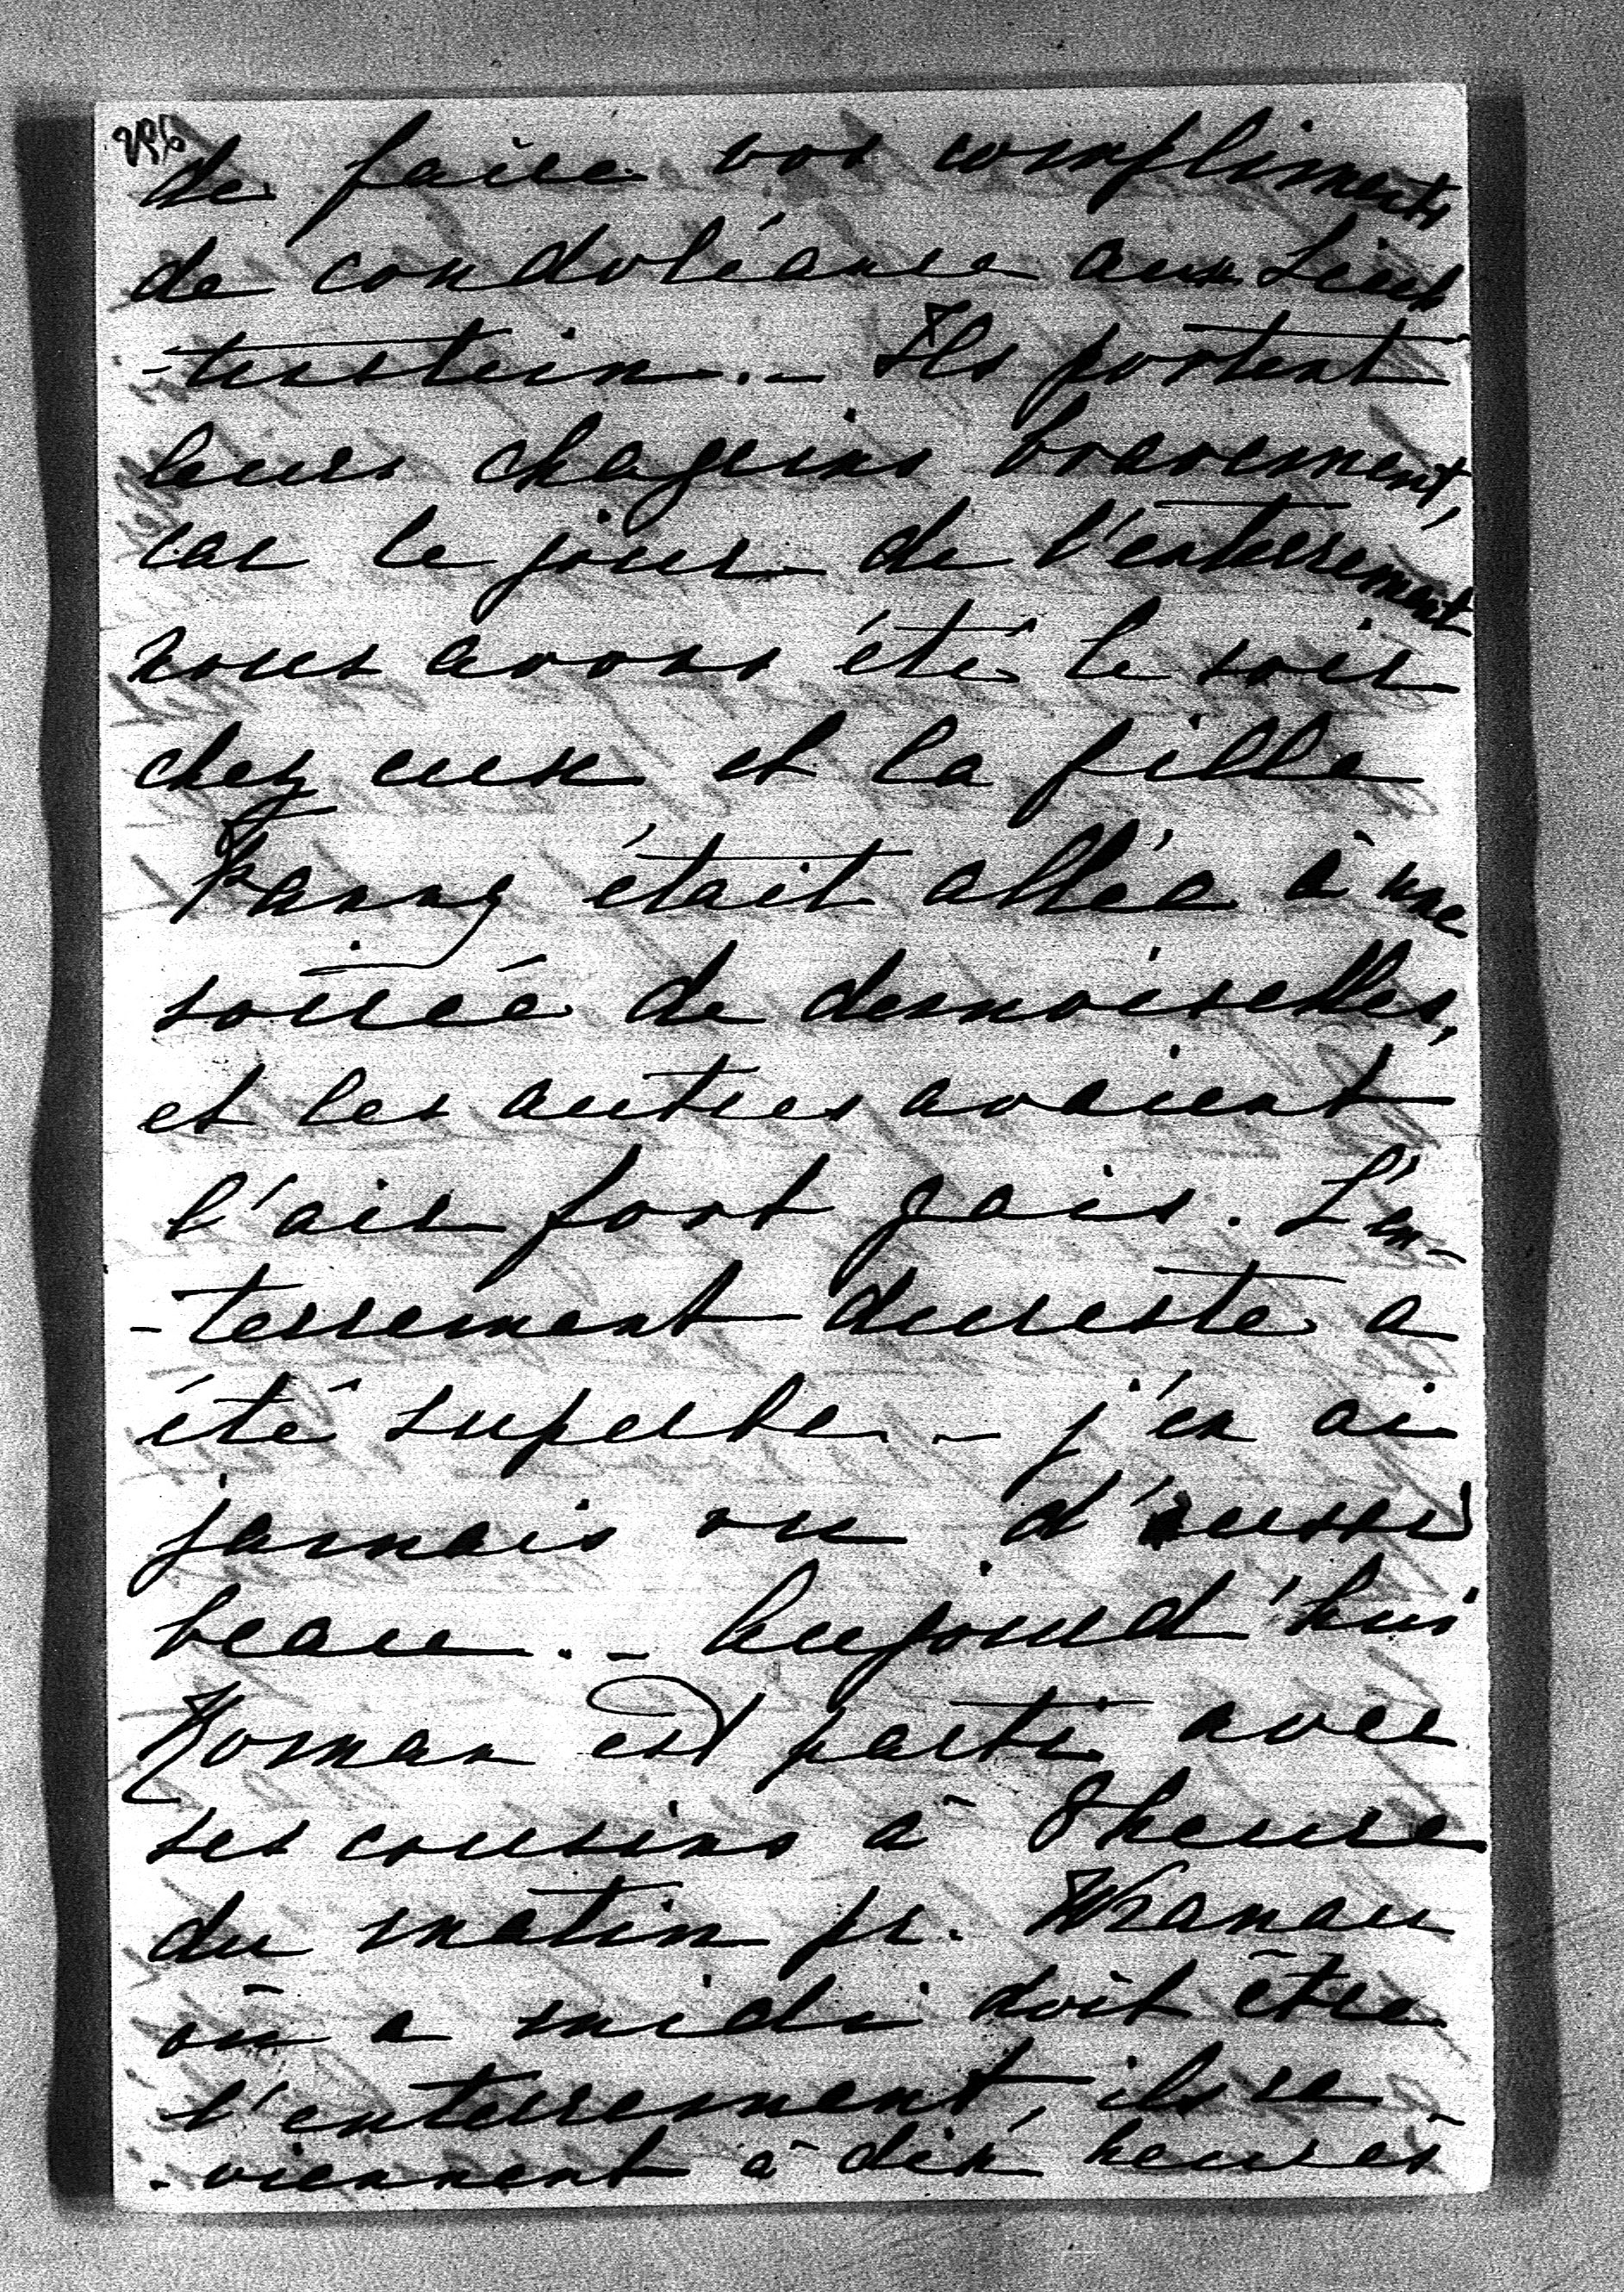 de faire vos compliments
de condoléance aux Liech
-tenstein. - Ils portent
leurs chagrins bravement,
car le jour de l'enterrement
nous avons été le soir
chez eux et la fille
Fanny était allée à une
soirée de demoiselles,
et les autres avaient
l'air fort gais. L'en-
-terrement dureste a
été superbe. - j'en ai
jamais vu d'aussi
beau. - Aujourd'hui
Roman est parti avec
ses cousins à 8 heure
du matin pr. Wranau
où a midi doit être
l'enterrement, ils re
-viennent à dix heures